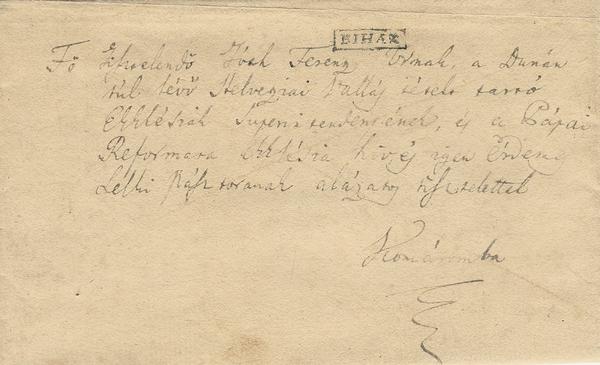 BIHAR
Fő Tiszelendő Tóth Ferenz Urnak, a Dunán
túl lévő Helvegziai Vallás tételt tartó
Ekklésiák Superintendensének, és a Pápai
Reformata Ekklésia hív és igen Érdemes
Lelki Pásztorának alázatos tisztelettel
Komáromba